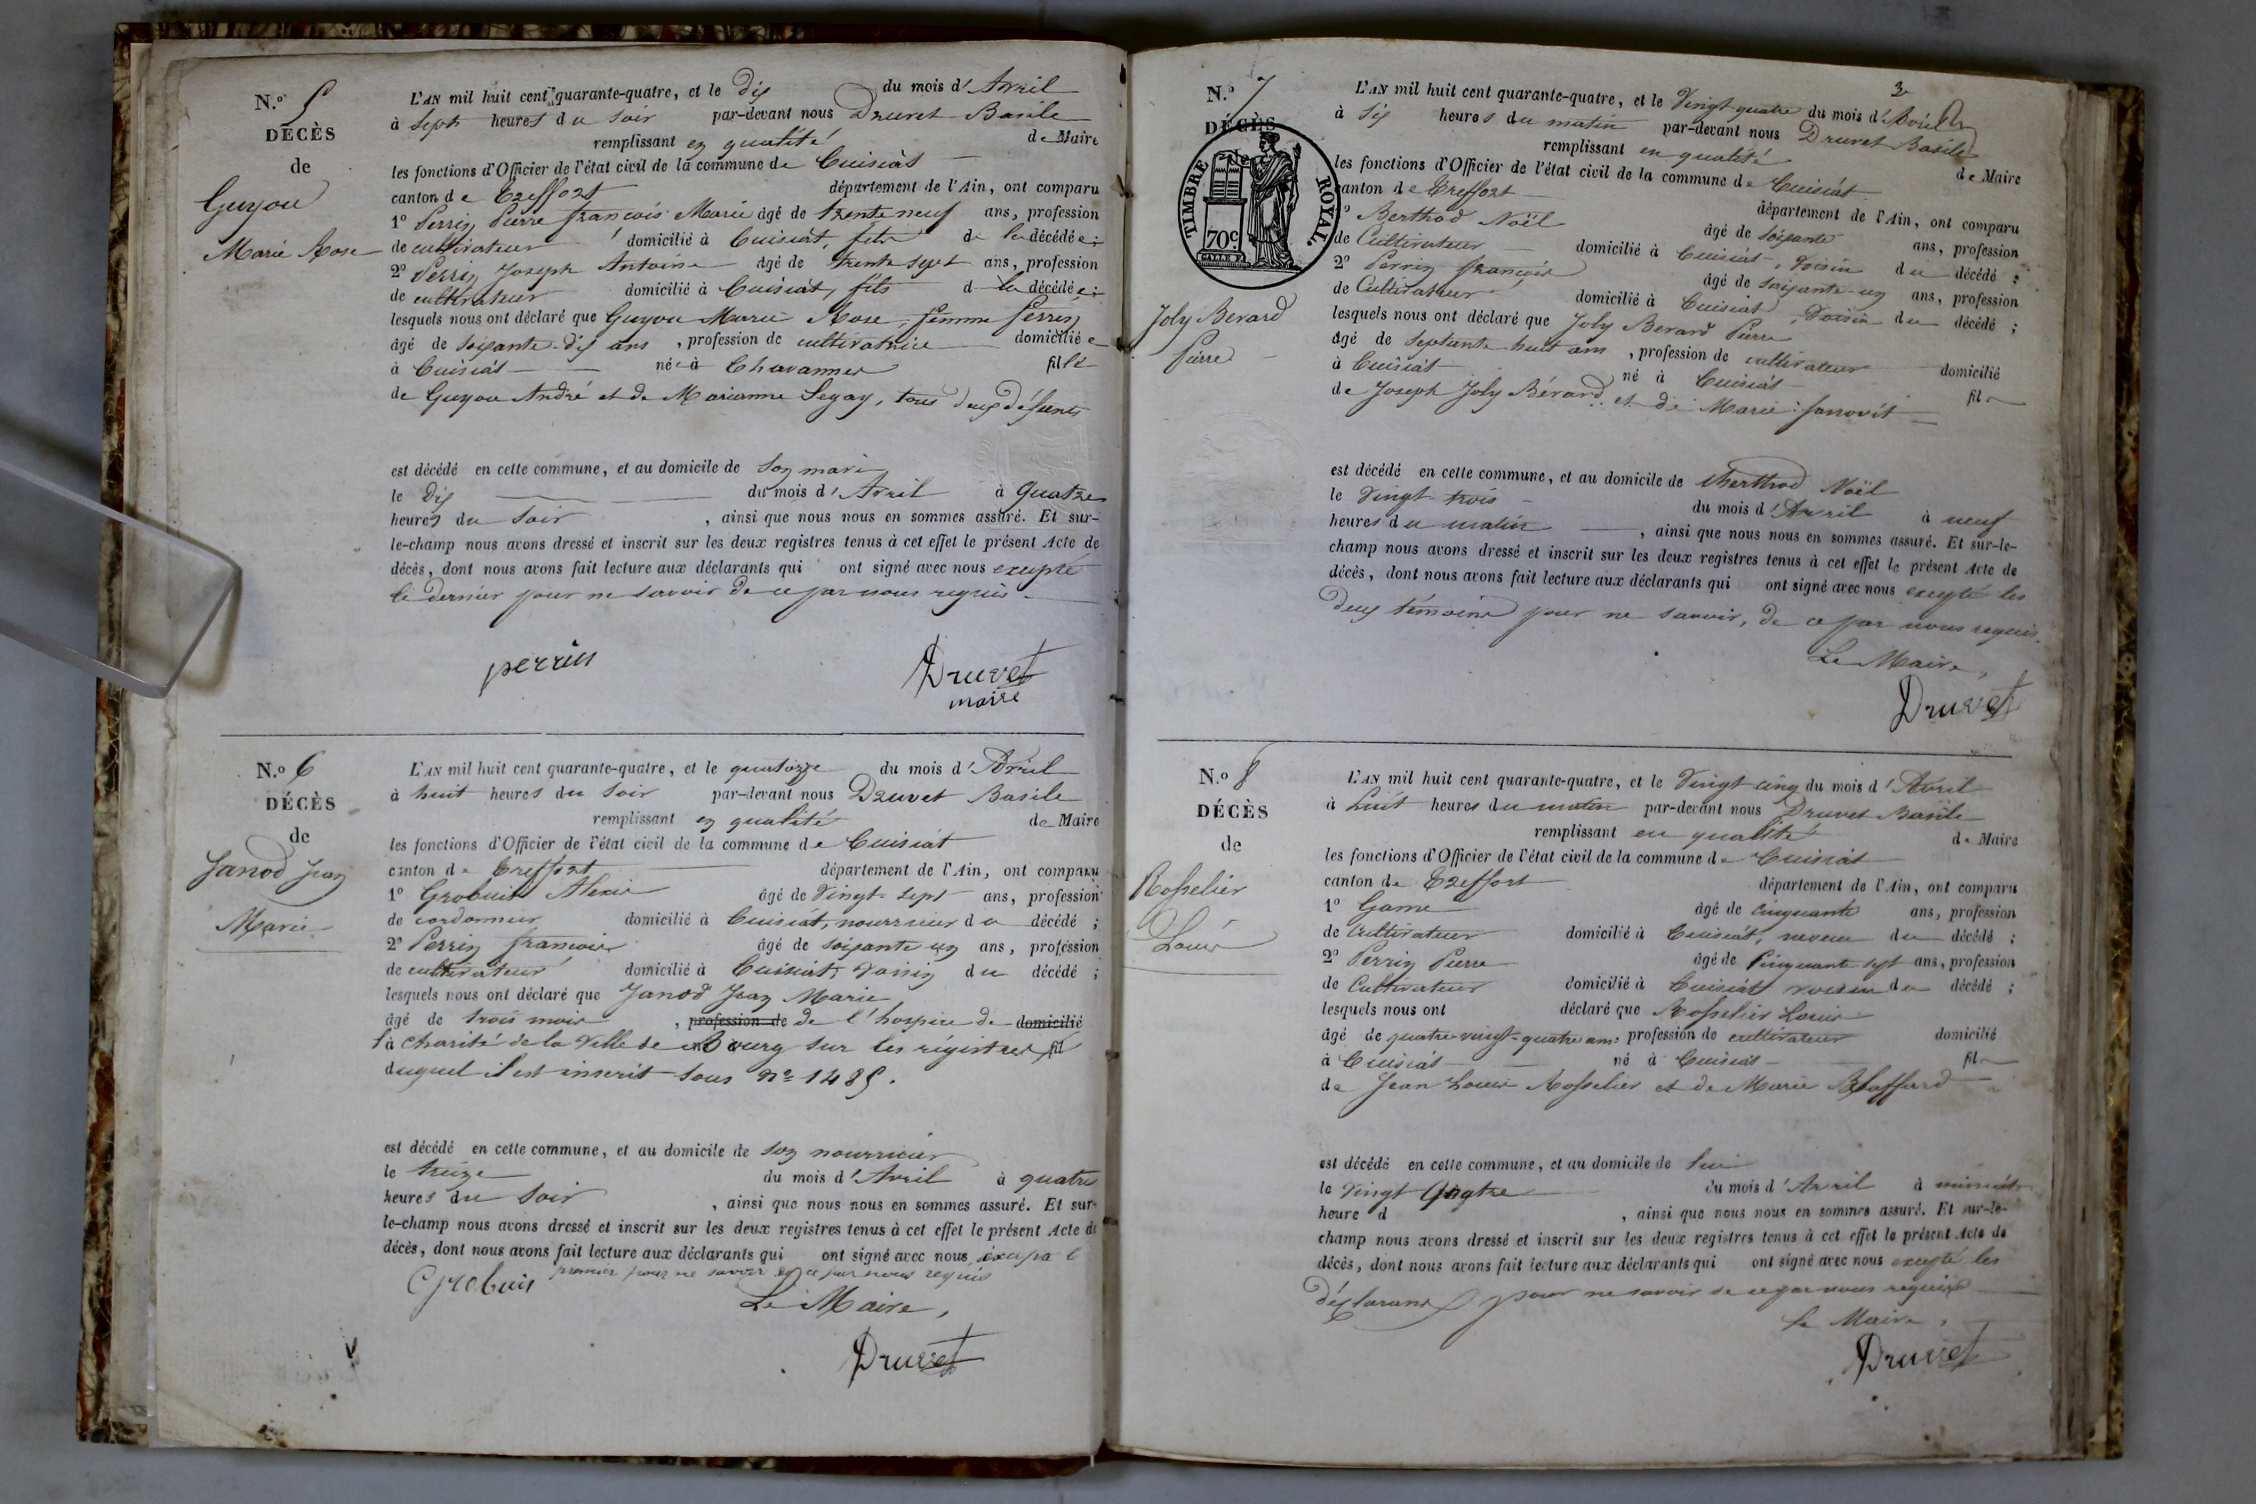 N.º 5
DÉCÈS
de
Guyou
Marie Rose
L'AN mil huit cent quarante-quatre, et le dix du mois d'Avril
à Sept heures du soir par-devant nous Druvet Basile
remplissant en qualité de Maire
les fonctions d'Officier de l'état civil de la commune de Cuisiat
canton de Treffort département de l'Ain, ont comparu
1º Perrin Pierre françois Marie âgé de trente neuf ans, profession
de cultivateur domicilié à Cuisiat, fils de la décédée;
2º Perrin Joseph Antoine âgé de trente sept ans, profession
de cultivateur domicilié à Cuisiat, fils d la décédée;
lesquels nous ont déclaré que Guyou Marie Rose, femme Perrin
âgé de soixante-dix ans, profession de cultivatrice domiciliée
à Cuisiat née à Chavannes fille
de Guyou André et de Marianne Legay, tous deux défunts
est décédé en cette commune, et au domicile de son mari
le dix du mois d'Avril à quatre
heures du soir, ainsi que nous nous en sommes assuré. Et sur-
le-champ nous avons dressé et inscrit sur les deux registres tenus à cet effet le présent Acte de
décès, dont nous avons fait lecture aux déclarants qui ont signé avec nous excepté
le dernier pour ne savoir de ce par nous requis.
perrin
Druvet
maire
N.º 6
DÉCÈS
de
Janod Jean
Marie
L'AN mil huit cent quarante-quatre, et le quatorze du mois d'Avril
à huit heures du soir par-devant nous Druvet Basile
remplissant en qualité de Maire
les fonctions d'Officier de l'état civil de la commune de Cuisiat
canton de Treffort département de l'Ain, ont comparu
1º Grobuis Alexis âgé de vingt-sept ans, profession
de cordonnier domicilié à Cuisiat, nourricier du décédé;
2º Perrin françois âgé de soixante un ans, profession
de cultivateur domicilié à Cuisiat, voisin du décédé;
lesquels nous ont déclaré que Janod Jean Marie
âgé de trois mois, profession de de l'hospice de domicilié
à charité de la ville de Bourg sur les régistres fil
duquel il est inscrit sous nº 1485.
est décédé en cette commune, et au domicile de son nourricier
le treize du mois d'Avril à quatre
heures du soir, ainsi que nous nous en sommes assuré. Et sur-
le-champ nous avons dressé et inscrit sur les deux registres tenus à cet effet le présent Acte de
décès, dont nous avons fait lecture aux déclarants qui ont signé avec nous
premier pour ne savoir de ce par nous requis
Grobuis
Le Maire,
Druvet
3
N.º 7
DÉCÈS
TIMBRE ROYAL.
70c.
Joly Berard
Pierre
L'AN mil huit cent quarante-quatre, et le vingt-quatre du mois d'Avril
à six heures du matin par-devant nous Druvet Basile
remplissant en qualité de Maire
les fonctions d'Officier de l'état civil de la commune de Cuisiat
canton de Treffort département de l'Ain, ont comparu
1º Berthod Noël âgé de soixante ans, profession
de Cultivateur domicilié à Cuisiat, voisin du décédé;
2º Perrin françois âgé de soixante-un ans, profession
de Cultivateur domicilié à Cuisiat, voisin du décédé;
lesquels nous ont déclaré que Joly Berard Pierre
âgé de septante huit ans, profession de cultivateur domicilié
à Cuisiat né à Cuisiat fil
de Joseph Joly Bérard et de Marie
est décédé en cette commune, et au domicile de Berthod Noël
le vingt trois du mois d'Avril à neuf
heures du matin, ainsi que nous nous en sommes assuré. Et sur-le-
champ nous avons dressé et inscrit sur les deux registres tenus à cet effet le présent Acte de
décès, dont nous avons fait lecture aux déclarants qui ont signé avec nous excepté les
deux témoins pour ne savoir, de ce par nous requis.
Le Maire,
Druvet
N.º 8
DÉCÈS
de
Rosselier
Louis
L'AN mil huit cent quarante-quatre, et le vingt cinq du mois d'Avril
à huit heures du matin par-devant nous Druvet Basile
remplissant en qualité de Maire
les fonctions d'Officier de l'état civil de la commune de Cuisiat
canton de Treffort département de l'Ain, ont comparu
1º Game âgé de cinquante ans, profession
de Cultivateur domicilié à Cuisiat, neveu du décédé;
2º Perrin Pierre âgé de cinquante sept ans, profession
de Cultivateur domicilié à Cuisiat voisin du décédé;
lesquels nous ont déclaré que Rosselier Louis
âgé de quatre-vingt-quatre ans profession de cultivateur domicilié
à Cuisiat né à Cuisiat fil
de Jean Louis Rosselier et de Marie
est décédé en cette commune, et au domicile de lui
le vingt quatre du mois d'Avril à minuit
heure d, ainsi que nous nous en sommes assuré. Et sur-le-
champ nous avons dressé et inscrit sur les deux registres tenus à cet effet le présent Acte de
décès, dont nous avons fait lecture aux déclarants qui ont signé avec nous excepté les
déclarans pour ne savoir de ce par nous requis
Le Maire,
Druvet